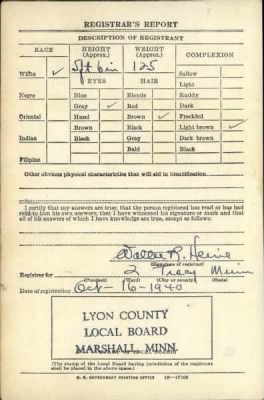 REGISTRAR'S REPORT
DESCRIPTION OF REGISTRANT
RACE HEIGHT (Approx.) WEIGHT (Approx.) COMPLEXION
White ✓ 5 ft 6 in 125 Sallow
EYES HAIR Light
Negro Blue Blonde Ruddy
Gray ✓ Red Dark
Oriental Hazel Brown ✓ Freckled
Brown Black Light brown ✓
Indian Black Gray Dark brown
Bald Black
Filipino
Other obvious physical characteristics that will aid in identification
I certify that my answers are true; that the person registered has read or has had
read to him his own answers; that I have witnessed his signature or mark and that
all of his answers of which I have knowledge are true, except as follows:
Walter R.
(Signature of registrar)
Registrar for 2 Tracy Minn
(Precinct) (Ward) (City or county) (State)
Date of registration Oct - 16 - 1940
LYON COUNTY
LOCAL BOARD
MARSHALL, MINN.
(The stamp of the Local Board having jurisdiction of the registrant
shall be placed in the above space.)
U. S. GOVERNMENT PRINTING OFFICE 16—17105